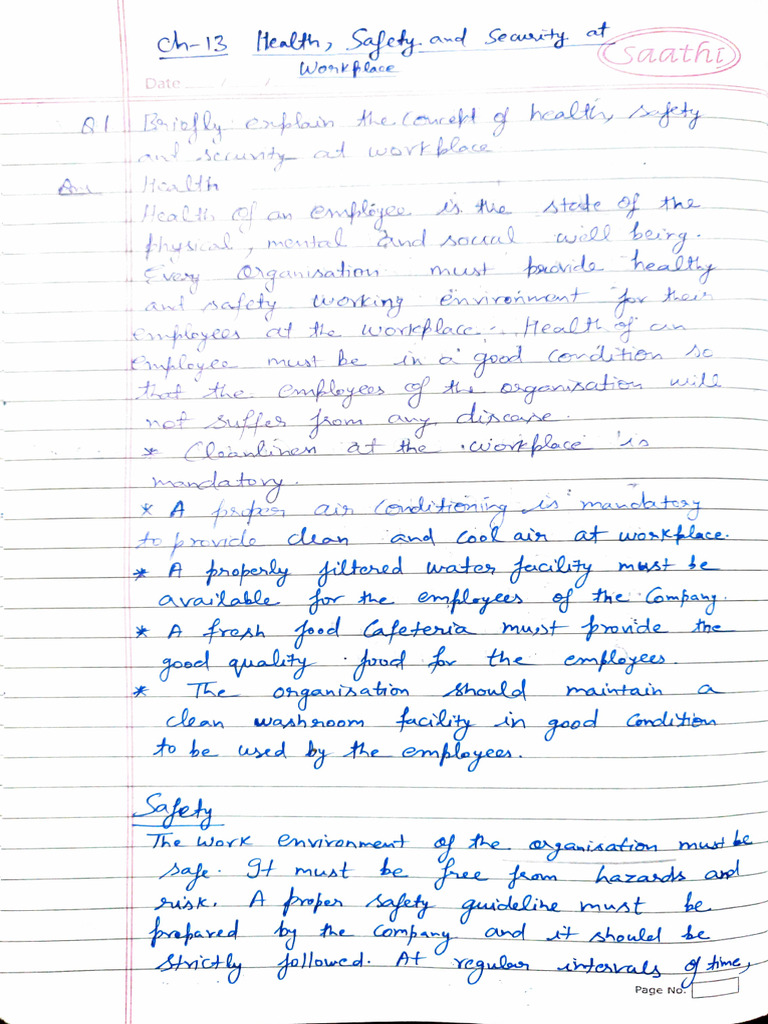 Ch-13 Health, Safety and Security at
Workplace
Saathi
Date / /
Q1 Briefly explain the concept of health, safety
and security at workplace
Ans Health
Health of an employee is the state of the
physical, mental and social well being.
Every organisation must provide healthy
and safety working environment for their
employees at the workplace. Health of an
employee must be in a good condition so
that the employees of the organisation will
not suffer from any disease.
* Cleanliness at the workplace is
mandatory.
* A proper air conditioning is mandatory
to provide clean and cool air at workplace.
* A properly filtered water facility must be
available for the employees of the Company.
* A fresh food Cafeteria must provide the
good quality food for the employees.
* The organisation should maintain a
clean washroom facility in good condition
to be used by the employees.
Safety
The work environment of the organisation must be
safe. It must be free from hazards and
risk. A proper safety guideline must be
prepared by the company and it should be
strictly followed. At regular intervals of time,
Page No.